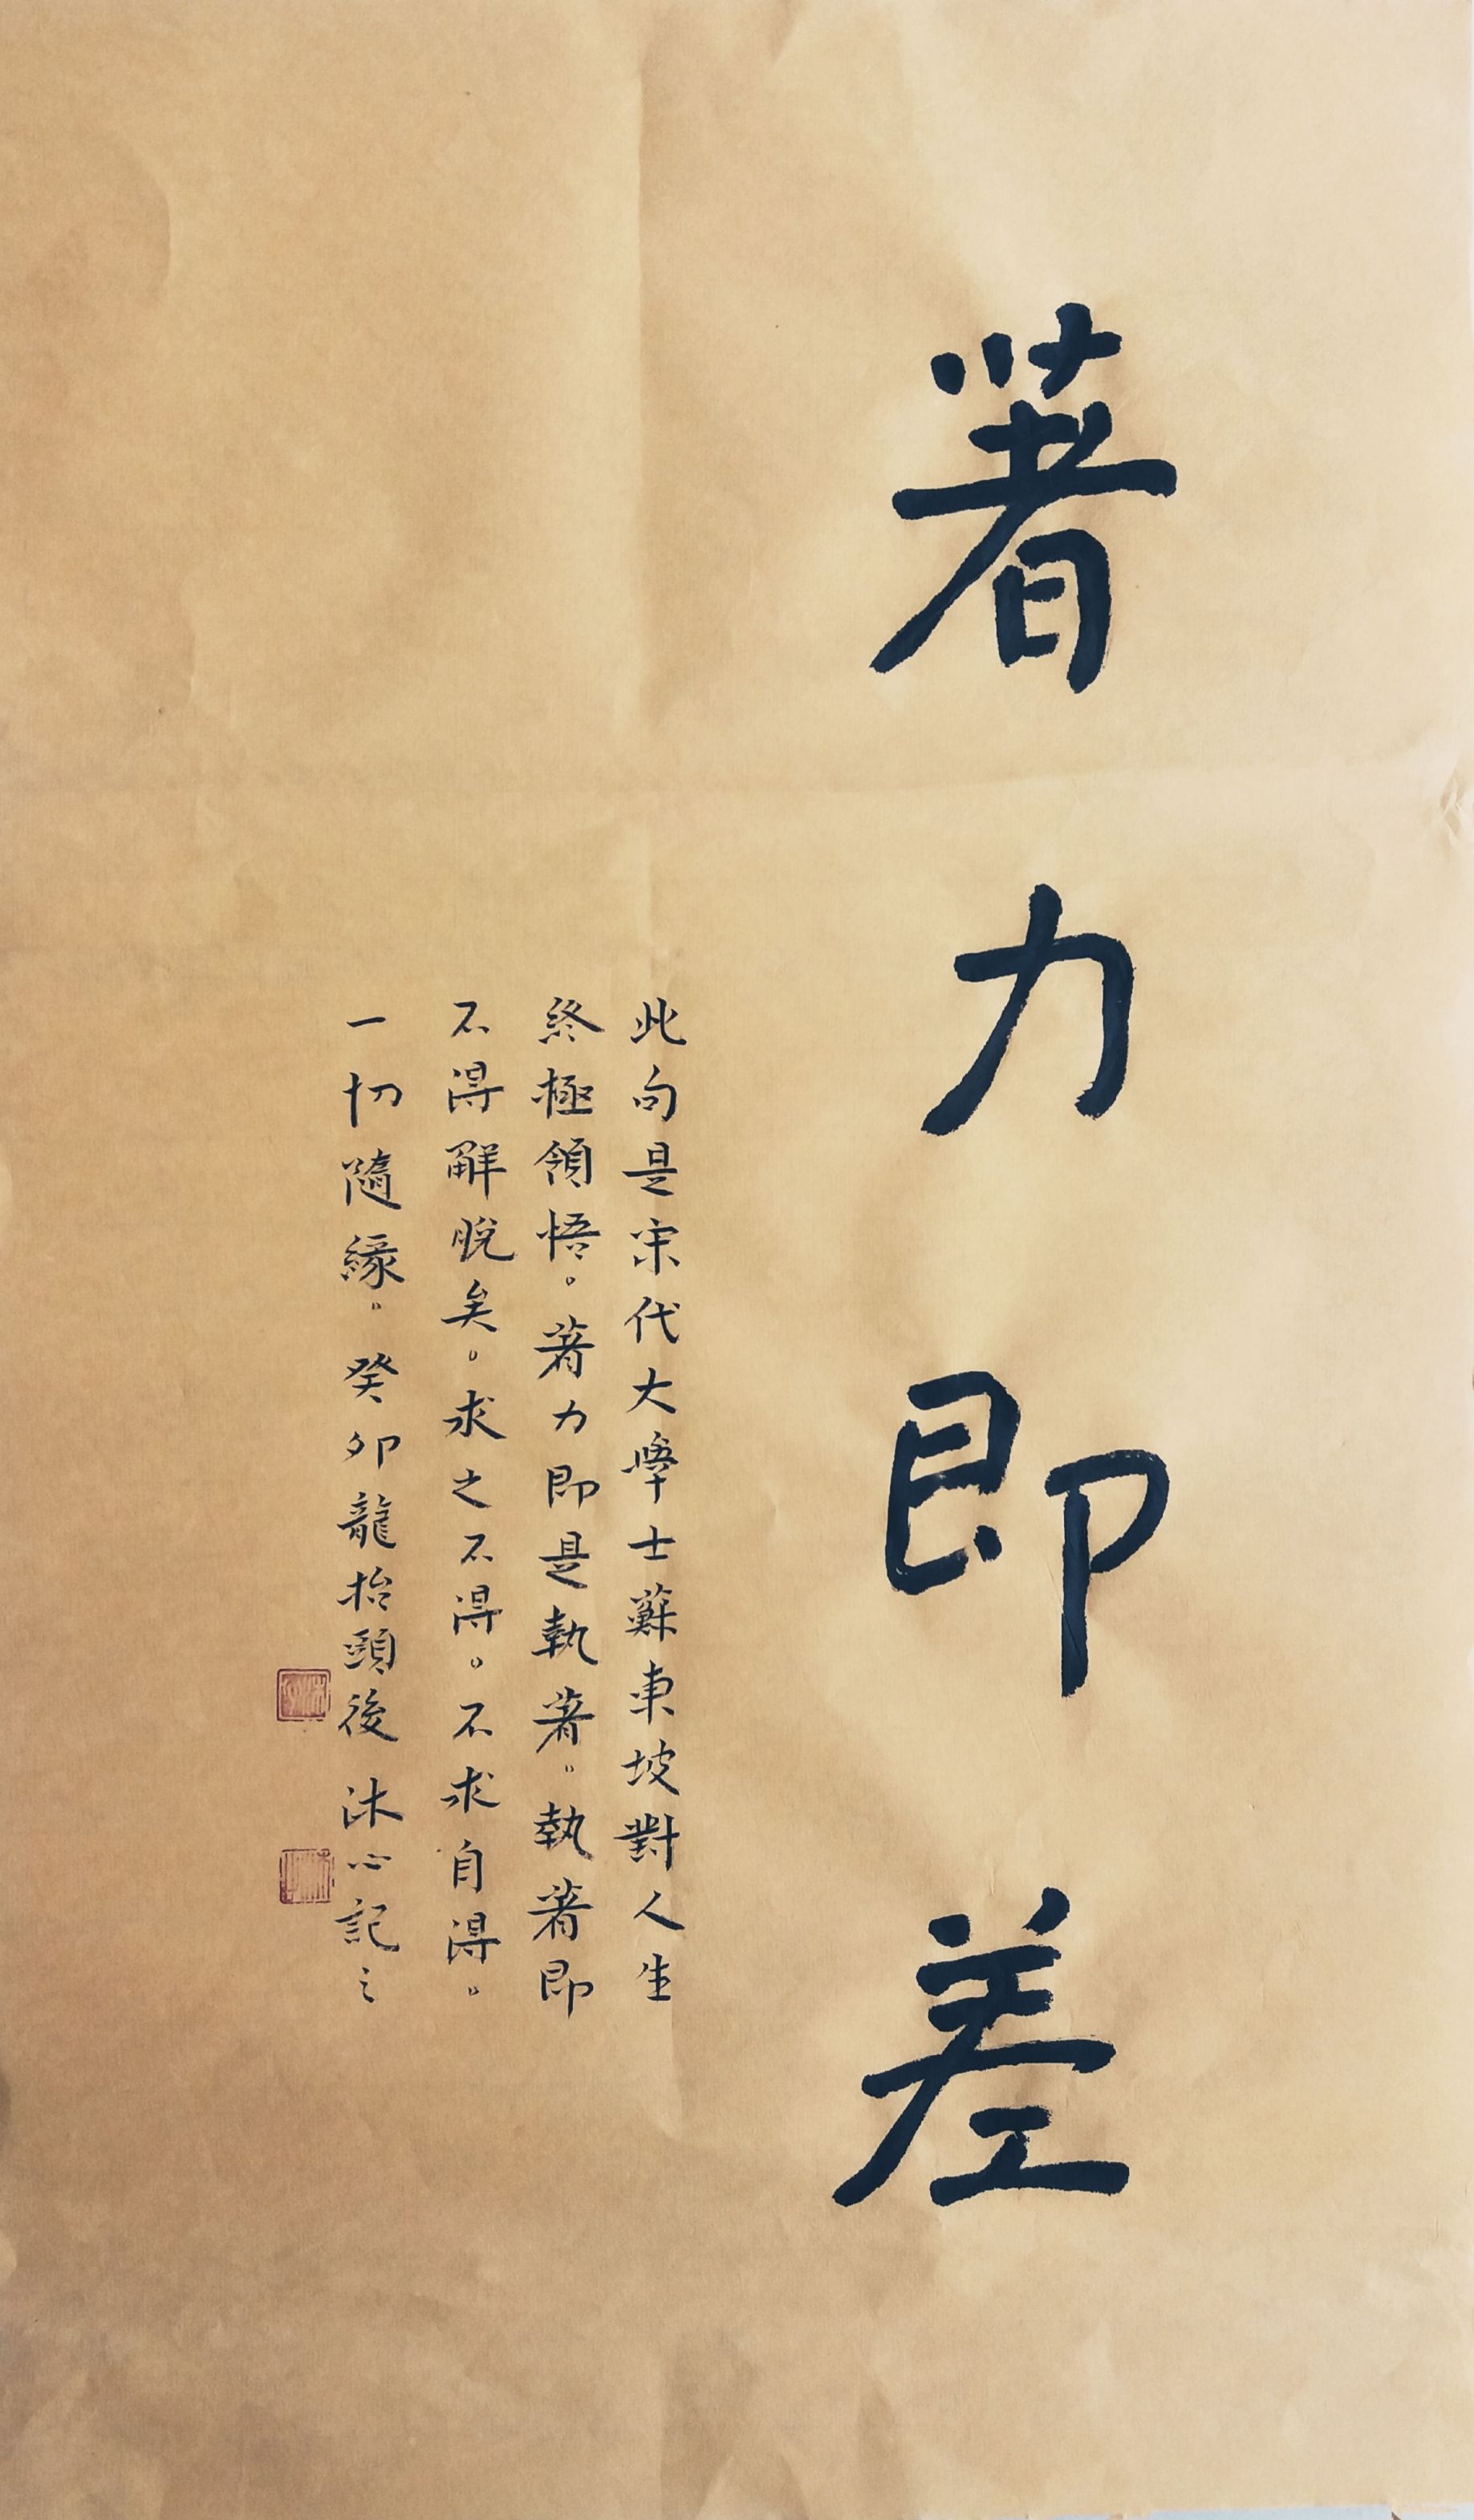 著力即差
此句是宋代大學士蘇東坡對人生
終極領悟。著力即是執著。執著即
不得解脫矣。求之不得。不求自得。
一切隨緣。癸卯龍抬頭後沐心記之